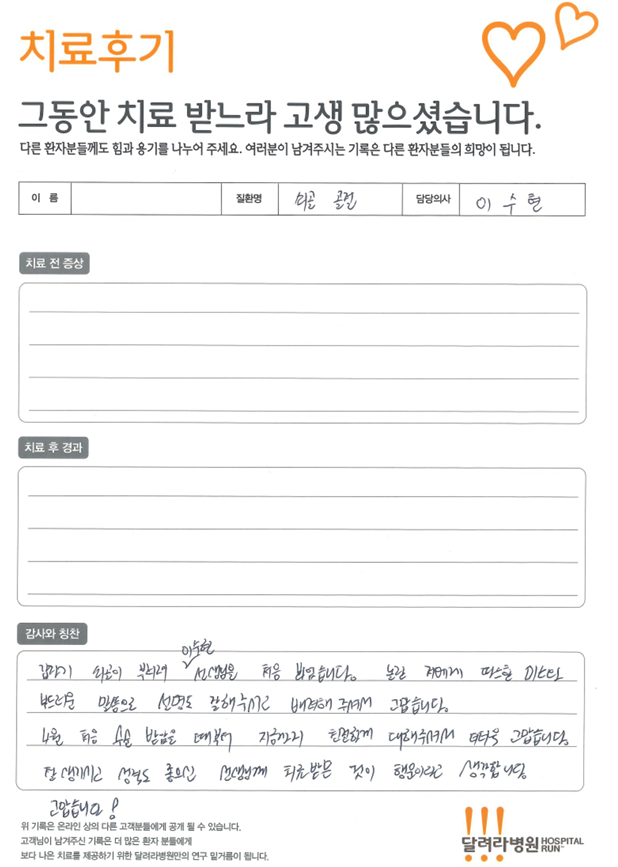 치료후기
그동안 치료 받느라 고생 많으셨습니다.
다른 환자분들께도 힘과 용기를 나누어 주세요. 여러분이 남겨주시는 기록은 다른 환자분들의 희망이 됩니다.
이 름 질환명 쇄골 골절 담당의사 이수현
치료 전 증상
치료 후 경과
감사와 칭찬
이수현
갑자기 쇄골이 부러져 선생님을 처음 뵈었습니다. 놀란 저에게 따스한 미소와
부드러운 말씀으로 설명도 잘해주시고 배려해 주셔서 고맙습니다.
4월 처음 수술 받았을 때부터 지금까지 친절하게 대해주셔서 더더욱 고맙습니다.
잘 생기시고 성격도 좋으신 선생님께 치료받은 것이 행운이라고 생각합니다
고맙습니다!
위 기록은 온라인 상의 다른 고객분들에게 공개 될 수 있습니다.
고객님이 남겨주신 기록은 더 많은 환자 분들에게
보다 나은 치료를 제공하기 위한 달려라병원만의 연구 밑거름이 됩니다.
달려라병원 HOSPITAL RUN™